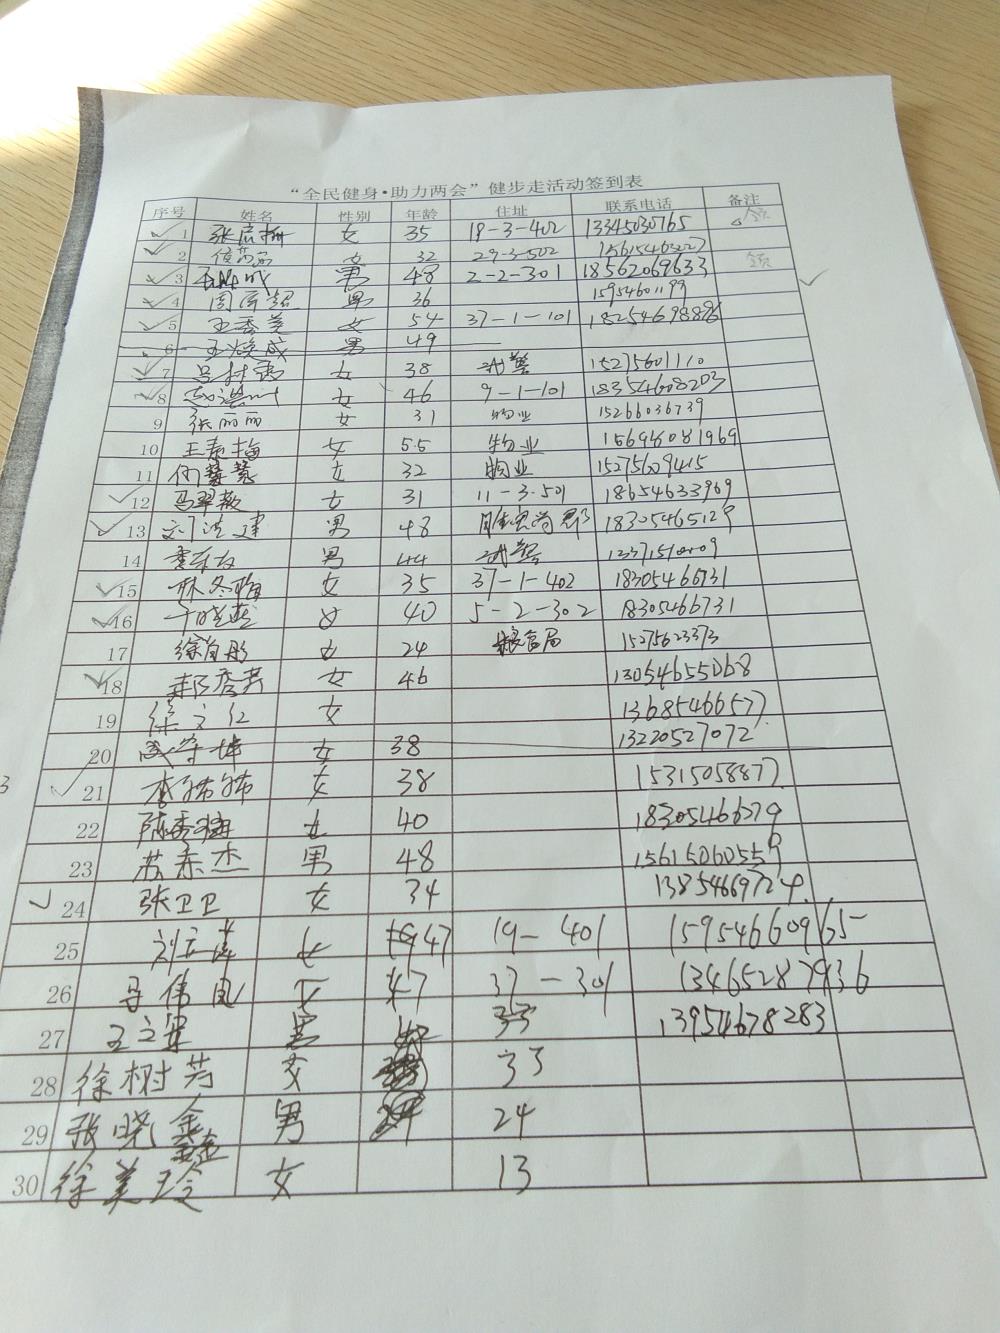 “全民健身·助力两会”健步走活动签到表
序号 姓名 性别 年龄 住址 联系电话 备注
1 女 35 19-3-402 13345030765
2 女 32 29-3-502 领
3 男 48 2-2-301 18562069633
4 男 36 15954601199
5 王秀美 女 54 37-1-101
6 王焕成 男 49
7 女 38 武警 15275601110
8 女 46 9-1-101 18354608203
9 张丽丽 女 31 物业 15266036739
10 王素梅 女 55 物业 15694681969
11 何慧慧 女 32 物业 15275609415
12 马翠敏 女 31 11-3-501 18654633969
13 刘洪建 男 48 18305465129
14 男 44 武警
15 林冬梅 女 35 37-1-402 18305466731
16 于晓燕 女 40 5-2-302 18305466731
17 徐肖彤 女 24 粮食局 15275623373
18 郝秀芹 女 46 13054655068
19 徐文红 女 13685466577
20 女 38 13220527072
21 女 38 15315058877
22 陈秀梅 女 40 18305466279
23 苏素杰 男 48 15615060559
24 张卫卫 女 34 13854669724
25 女 47 19-401 15954660965
26 马伟凤 女 47 37-301 13465287936
27 王立军 男 33 13954678283
28 徐树芳 女 33
29 张晓鑫 男 24
30 徐美玲 女 13